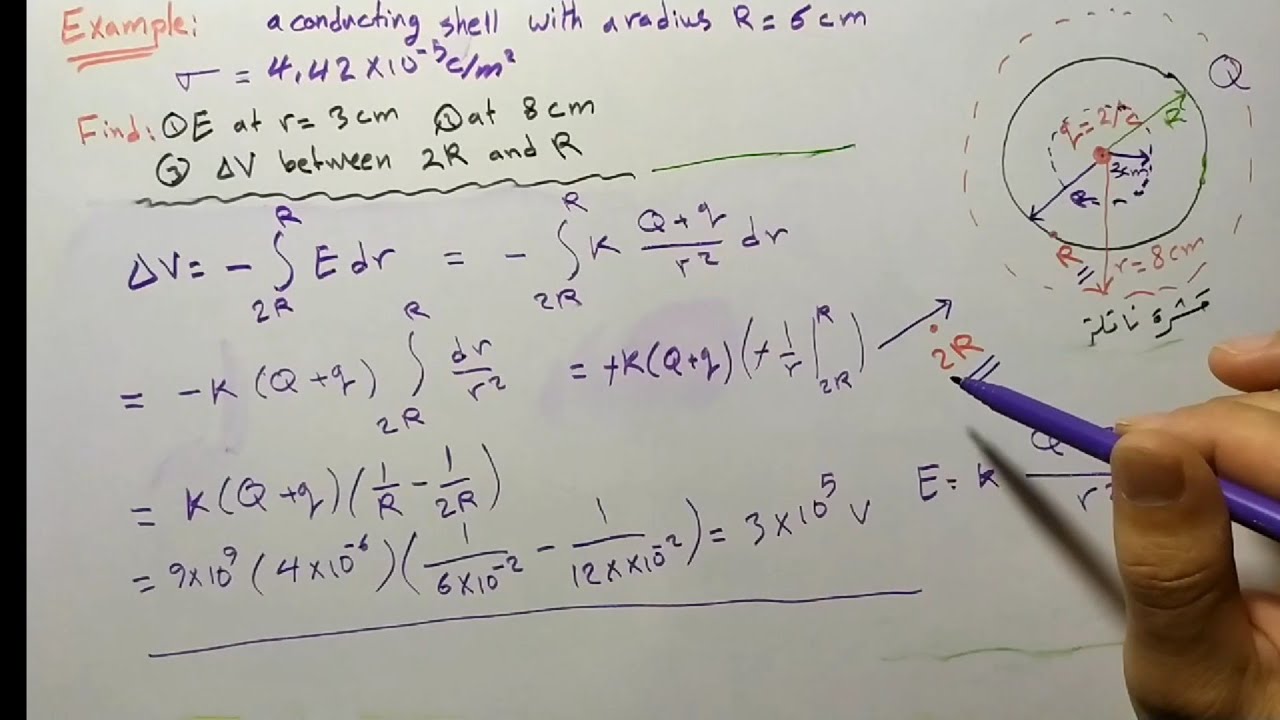 Example: a conducting shell with a radius R = 6 cm
σ = 4.42 × 10⁻⁵ c/m²
Find: ① E at r = 3 cm ② at 8 cm
③ ΔV between 2R and R
ΔV = - ∫_{2R}^{R} E dr = - ∫_{2R}^{R} k (Q+q)/r² dr
= - k (Q+q) ∫_{2R}^{R} dr/r² = + k (Q+q) (+ 1/r |_{2R}^{R})
= k (Q+q) (1/R - 1/2R)
= 9×10⁹ (4×10⁻⁶) (1/6×10⁻² - 1/12××10⁻²) = 3×10⁵ V
Q
R
q = 2μc
3cm
R
r = 8 cm
قشرة ناقلة
2R
E = k Q / r²